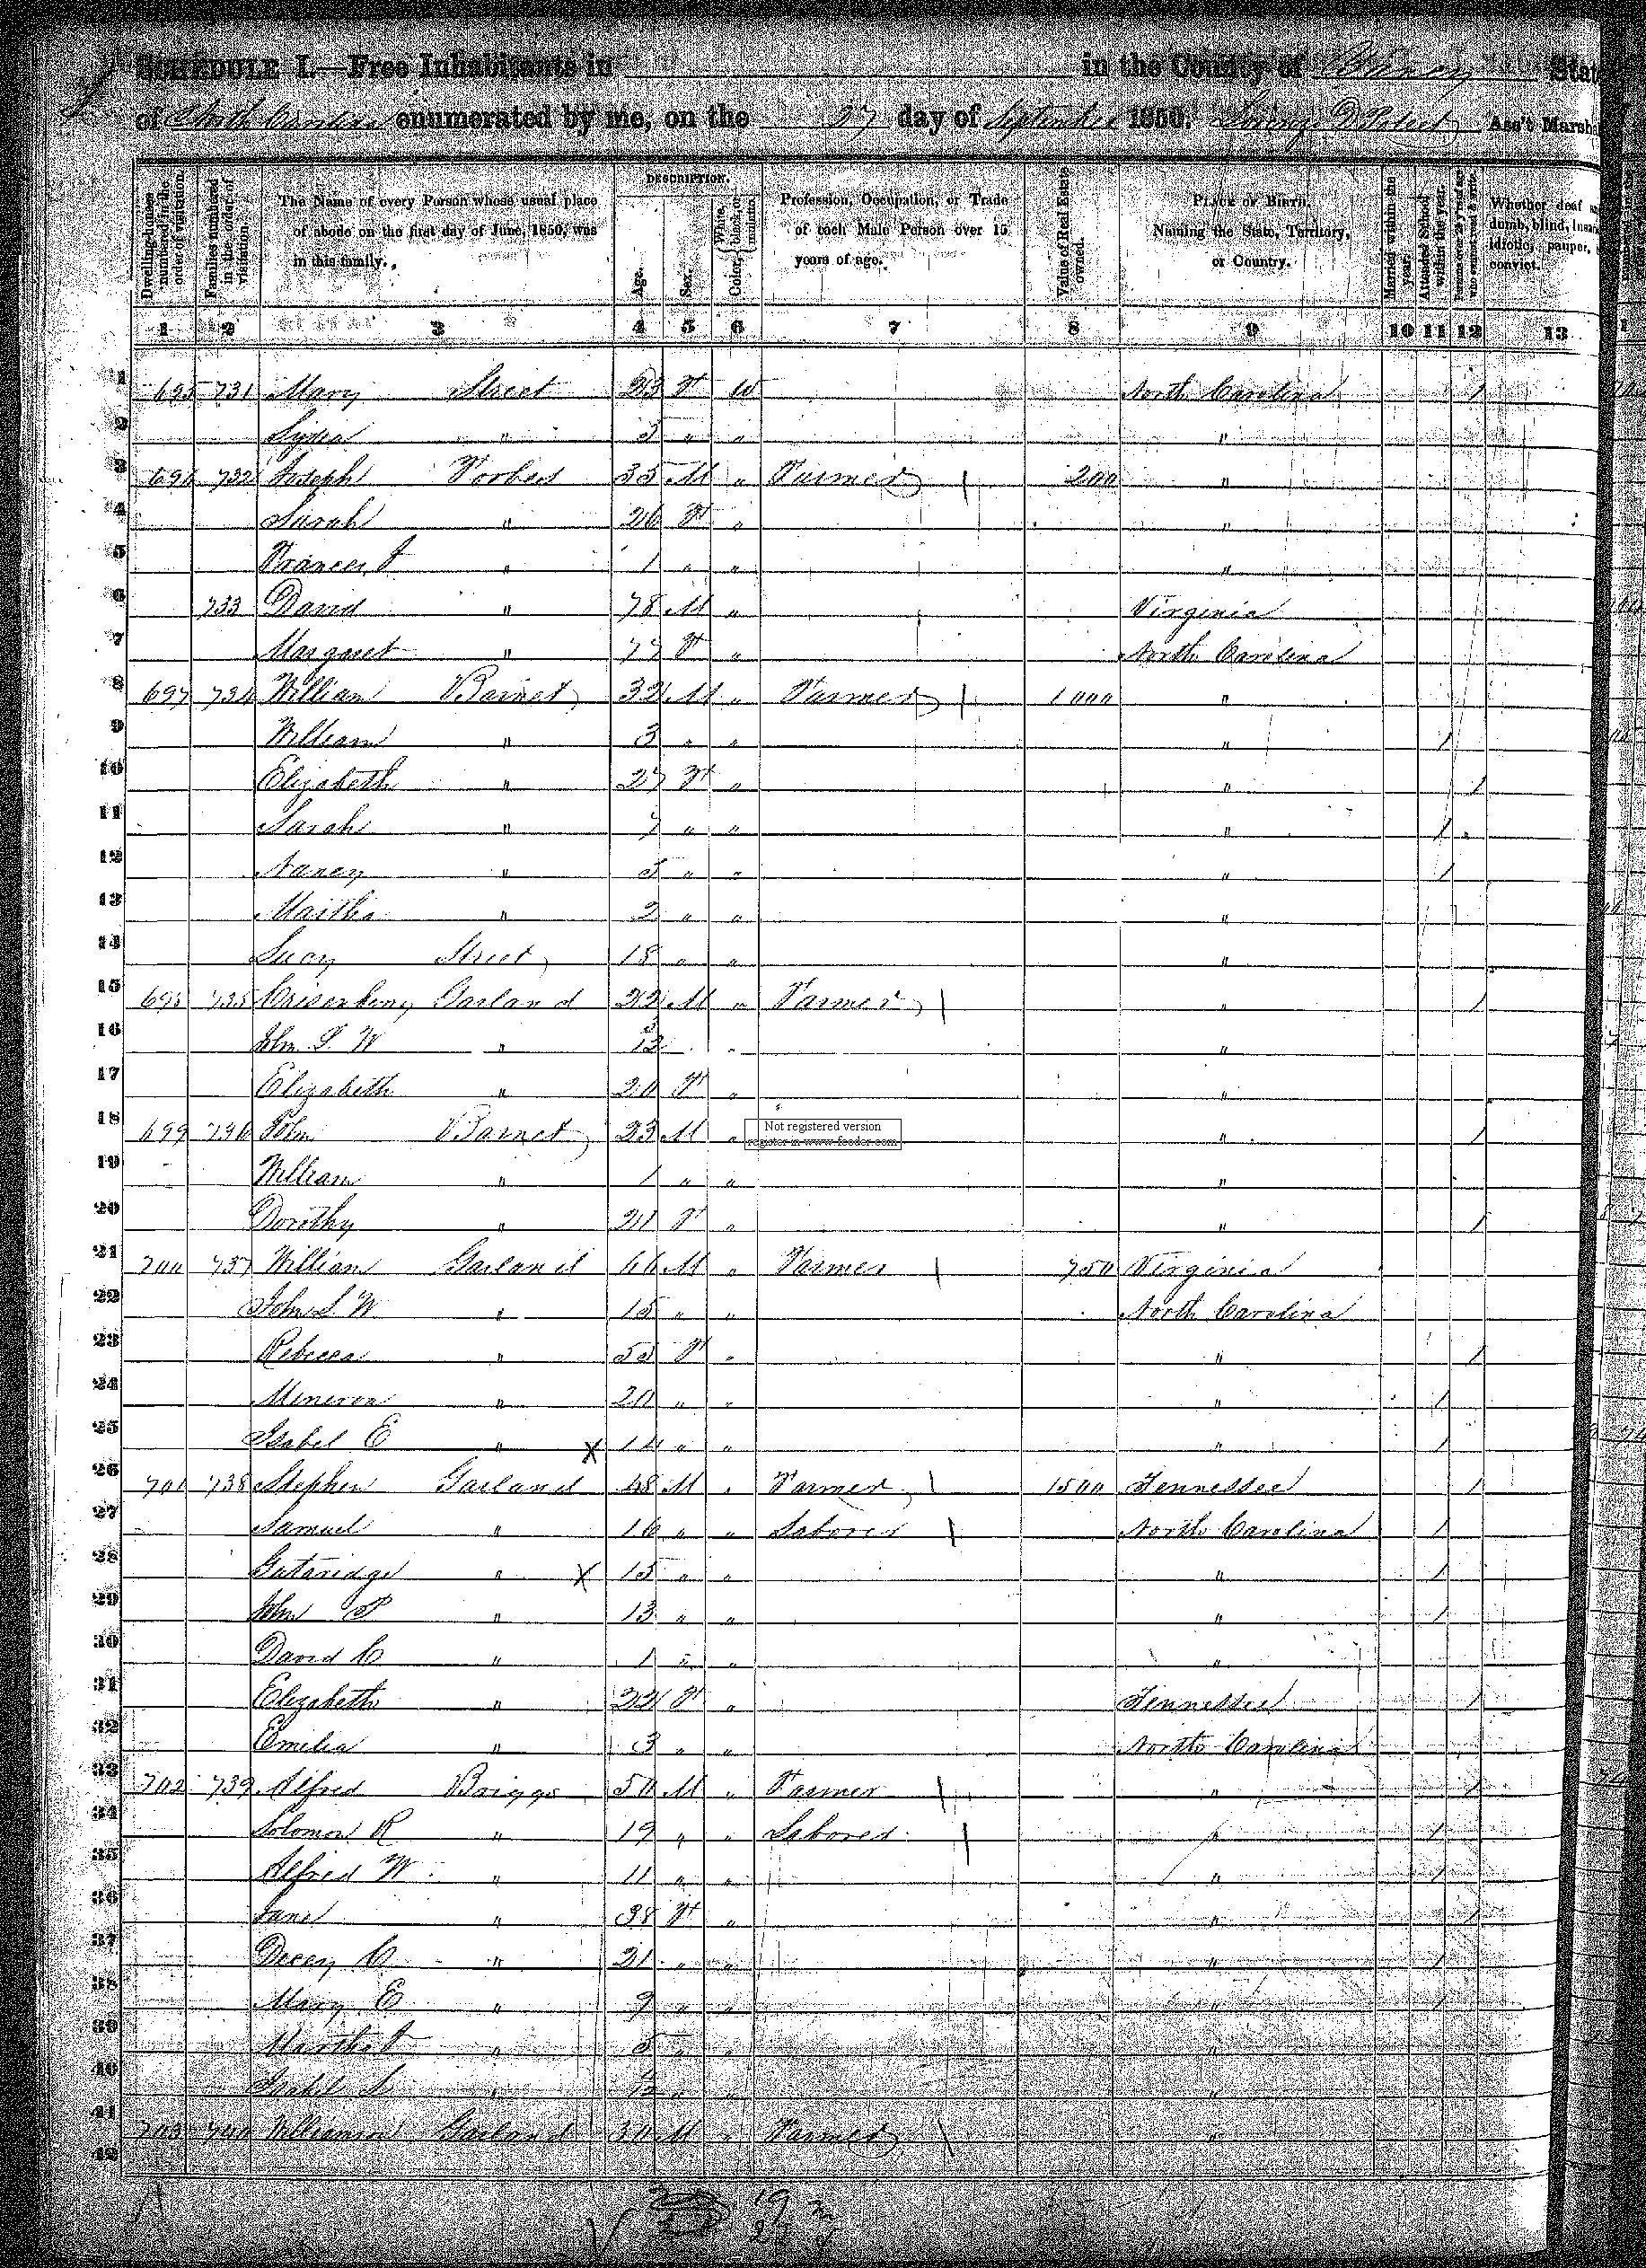 SCHEDULE I.—Free Inhabitants in in the County of Yancey State
of North Carolina enumerated by me, on the 27 day of September 1850. Ass't Marshal
Dwelling-houses numbered in the order of visitation.
Families numbered in the order of visitation.
The Name of every Person whose usual place of abode on the first day of June, 1850, was in this family.
DESCRIPTION.
Age.
Sex.
Color, White, black, or mulatto.
Profession, Occupation, or Trade of each Male Person over 15 years of age.
Value of Real Estate owned.
PLACE OF BIRTH. Naming the State, Territory, or Country.
Married within the year.
Attended School within the year.
Persons over 20 y'rs of age who cannot read & write.
Whether deaf and dumb, blind, insane, idiotic, pauper, or convict.
1 2 3 4 5 6 7 8 9 10 11 12 13
1 695 731 Mary Street 23 F W North Carolina /
2 Lydia " 3 " " "
3 696 732 Joseph Forbes 35 M " Farmer 200 "
4 Sarah " 26 F " "
5 Frances J " 1 " " "
6 733 David " 78 M " Virginia
7 Margaret " 77 F " North Carolina
8 697 734 William Barnet 32 M " Farmer 1000 "
9 William " 3 " " " /
10 Elizabeth " 27 F " " /
11 Sarah " 7 " " " /
12 Nancy " 5 " " " /
13 Martha " 2 " " "
14 Lucy Street 18 " " "
15 698 735 Garland 22 M " Farmer " /
16 John S W " 3/12 " "
17 Elizabeth " 20 F " "
18 699 736 John Barnet 23 M " " /
19 William " 1 " " "
20 Dorothy " 21 F " " /
21 700 737 William Garland 66 M " Farmer 750 Virginia
22 John S W " 15 " " North Carolina
23 Rebecca " 55 F " " /
24 Minerva " 20 " " " /
25 Isabel E " X 14 " " " /
26 701 738 Stephen Garland 48 M " Farmer 1500 Tennessee /
27 Samuel " 16 " " Laborer North Carolina /
28 Gutaridge " X 15 " " " /
29 John P " 13 " " " /
30 David C " 1 " " "
31 Elizabeth " 22 F " Tennessee /
32 Emilia " 3 " " North Carolina
33 702 739 Alfred Briggs 50 M " Farmer " /
34 Solomon R " 19 " " Laborer " /
35 Alfred W " 11 " " " /
36 Jane " 38 F " " /
37 Dicey C " 21 " " " /
38 Mary E " 9 " " " /
39 Martha J " 5 " "
40 Isabel " " "
41 703 740 Williamson Garland 30 M " Farmer "
42
Not registered version
register in www.feeder.com